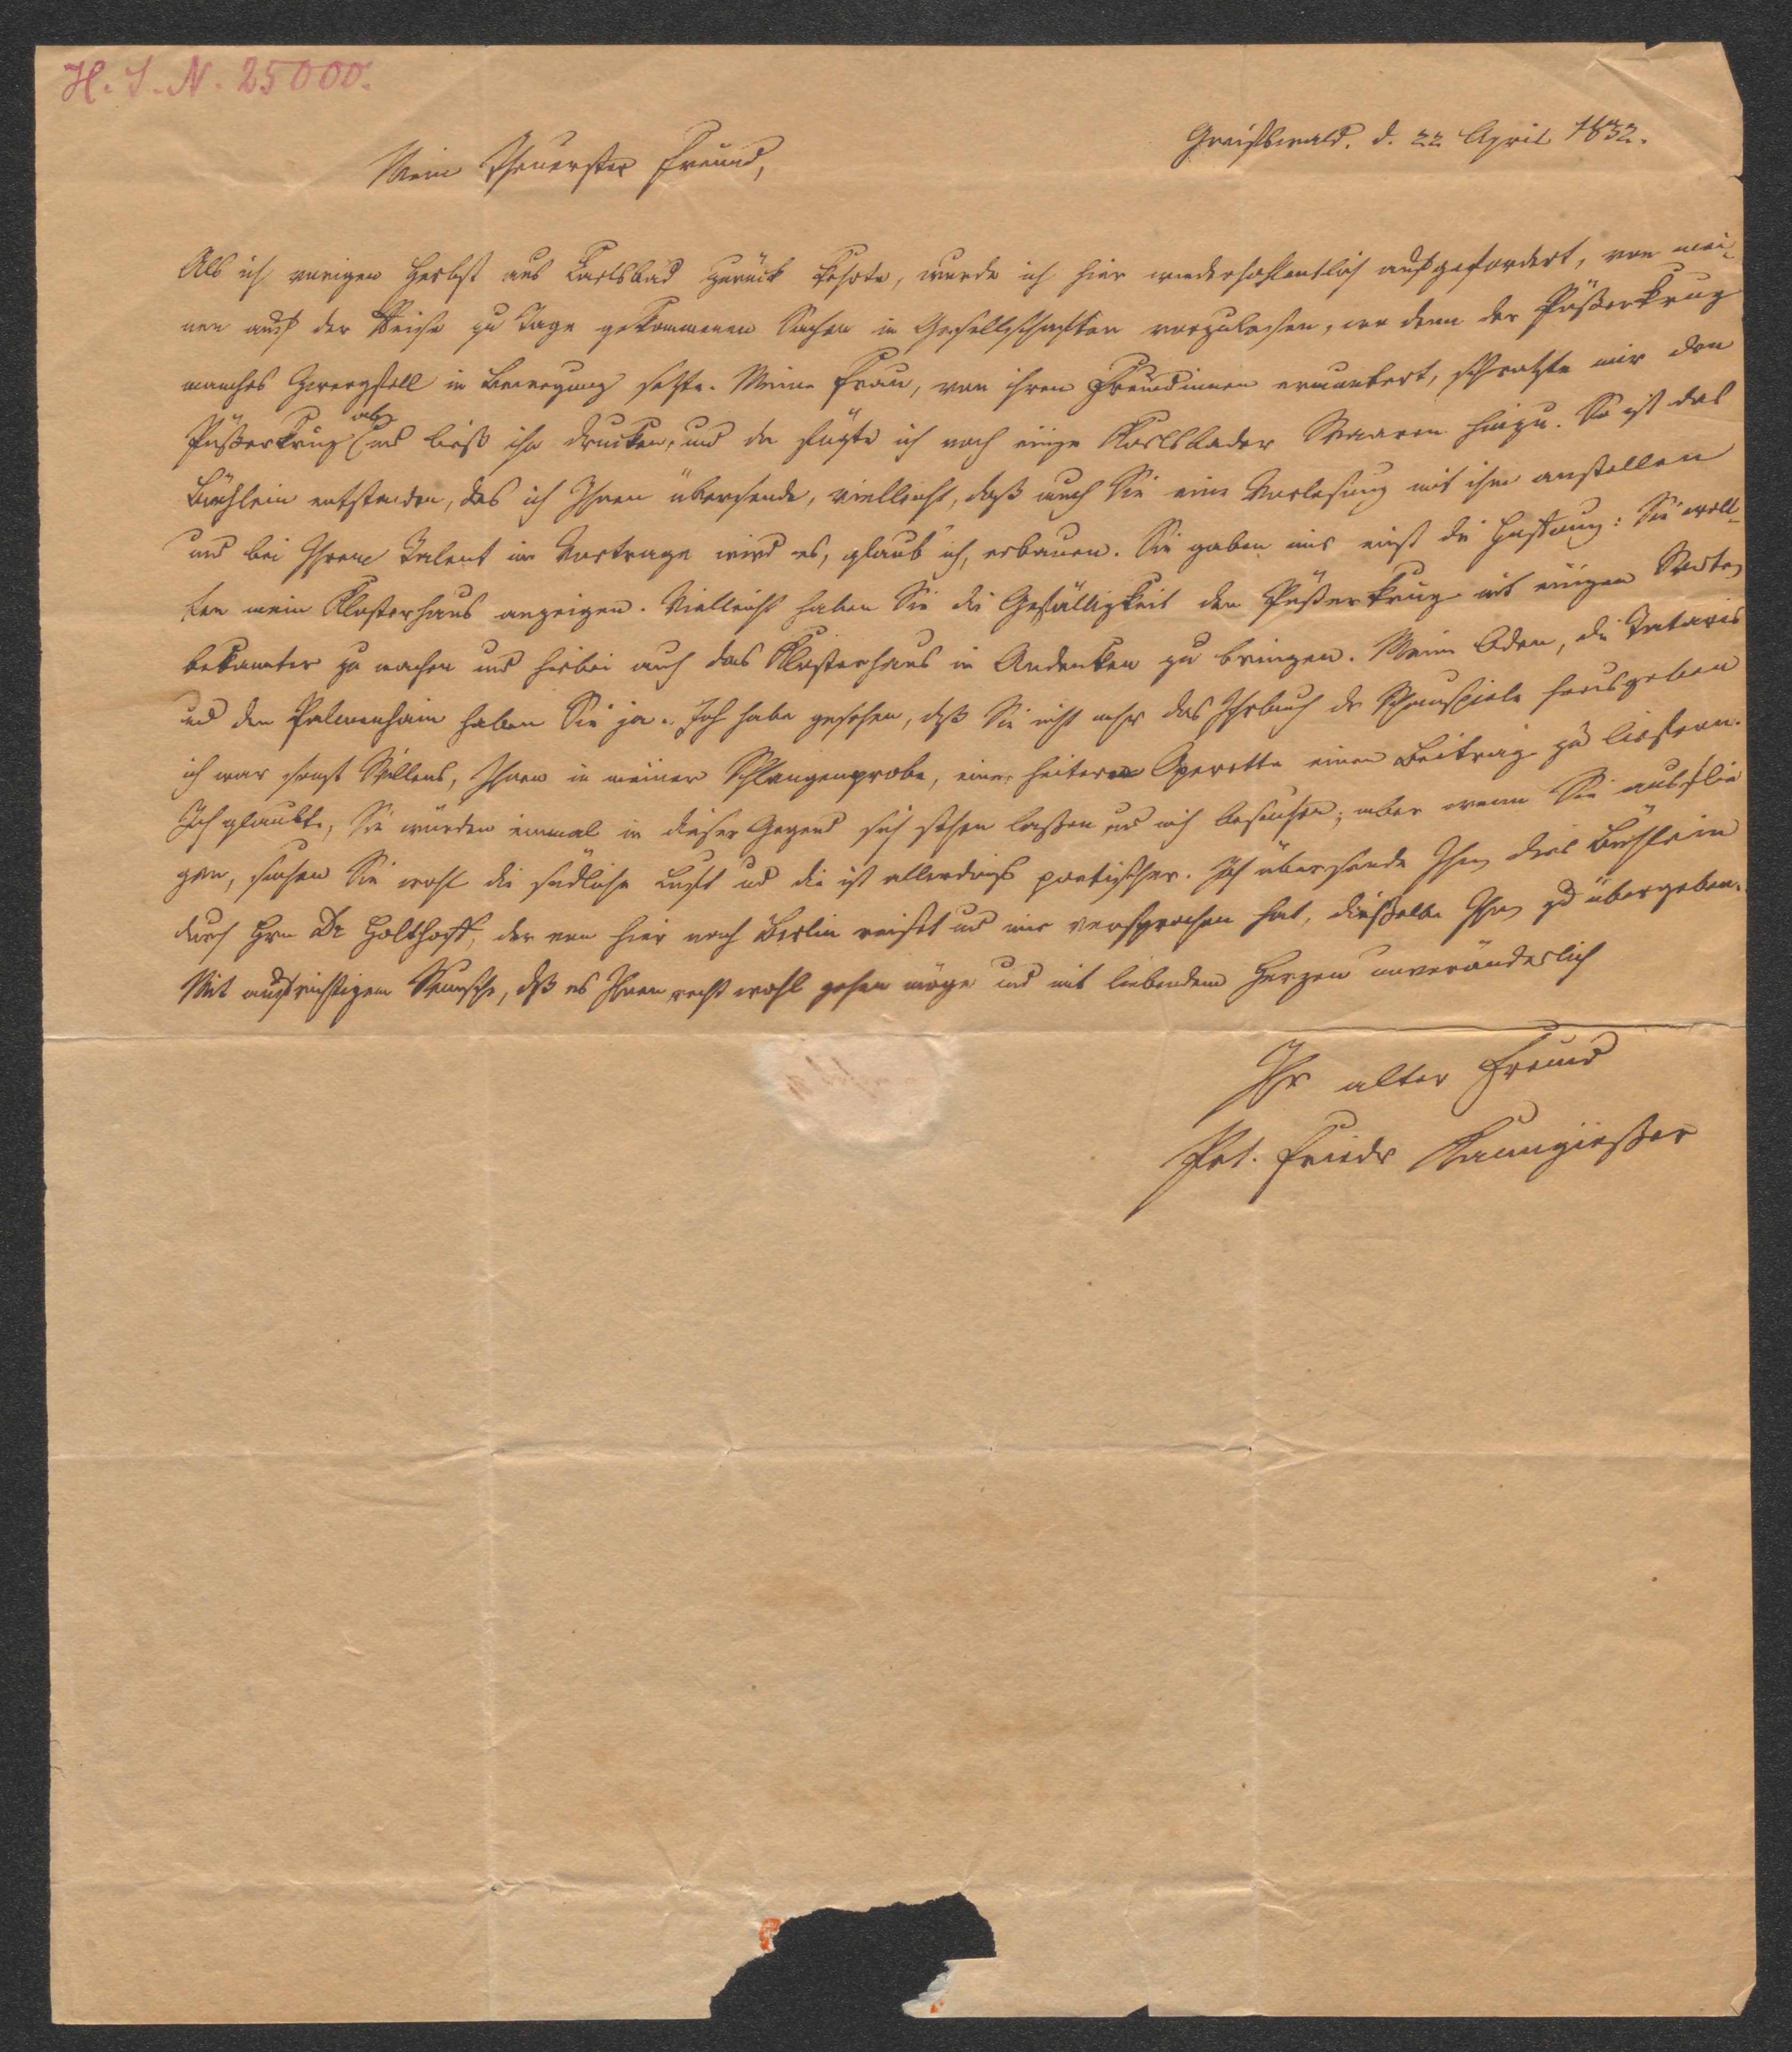 H. I. N. 25000.
Greifswald. d. 22 April 1832.
Mein Theuerster Freund,
Als ich vorigen Herbst aus Karlsbad zurück kehrte, wurde ich hier wiederhohlentlich aufgefordert, von mei-
nen auf der Reise zu Tage gekommenen Sachen in Gesellschaften vorzulesen, wo denn der
manches Zwergfell in Bewegung setzte. Meine Frau, von ihren Freundinnen ermuntert, schwatzte mir den
ab und ließ ihn drucken, und da fügte ich noch einige Karlsbader Waaren hinzu. So ist das
Büchlein entstanden, das ich Ihnen übersende, vielleicht, daß auch Sie eine Vorlesung mit ihm anstellen
und bei Ihrem Talent im Vortrage wird es, glaub' ich, erbauen. Sie gaben mir einst die Hoffnung: Sie woll-
ten mein Klosterhaus anzeigen. Vielleicht haben Sie die Gefälligkeit den mit einigen Worten
bekannter zu machen und hierbei auch das Klosterhaus in Andenken zu bringen. Meine Oden, die Tataris
und den Palmenhain haben Sie ja. Ich habe gesehen, daß Sie nicht mehr das Jahrbuch der Schauspiele herausgeben
ich war sonst Willens, Ihnen in meiner Schlangenprobe, einer heiteren Operette einen Beitrag zu liefern.
Ich glaubte, Sie würden einmal in dieser Gegend sich sehen laßen und mich besuchen; aber wenn Sie ausflie
gen, suchen Sie wohl die südliche Luft und die ist allerdings poetischer. Ich übersende Ihnen dies Büchlein
durch Hrn Dr Holthoff, der von hier nach Berlin reiset und mir versprochen hat, dießelbe Ihnen zu übergeben.
Mit aufrichtigem Wunsche, daß es Ihnen recht wohl gehen möge und mit liebendem Herzen unveränderlich
Ihr alter Freund
Pet. Friedr Kanngießer